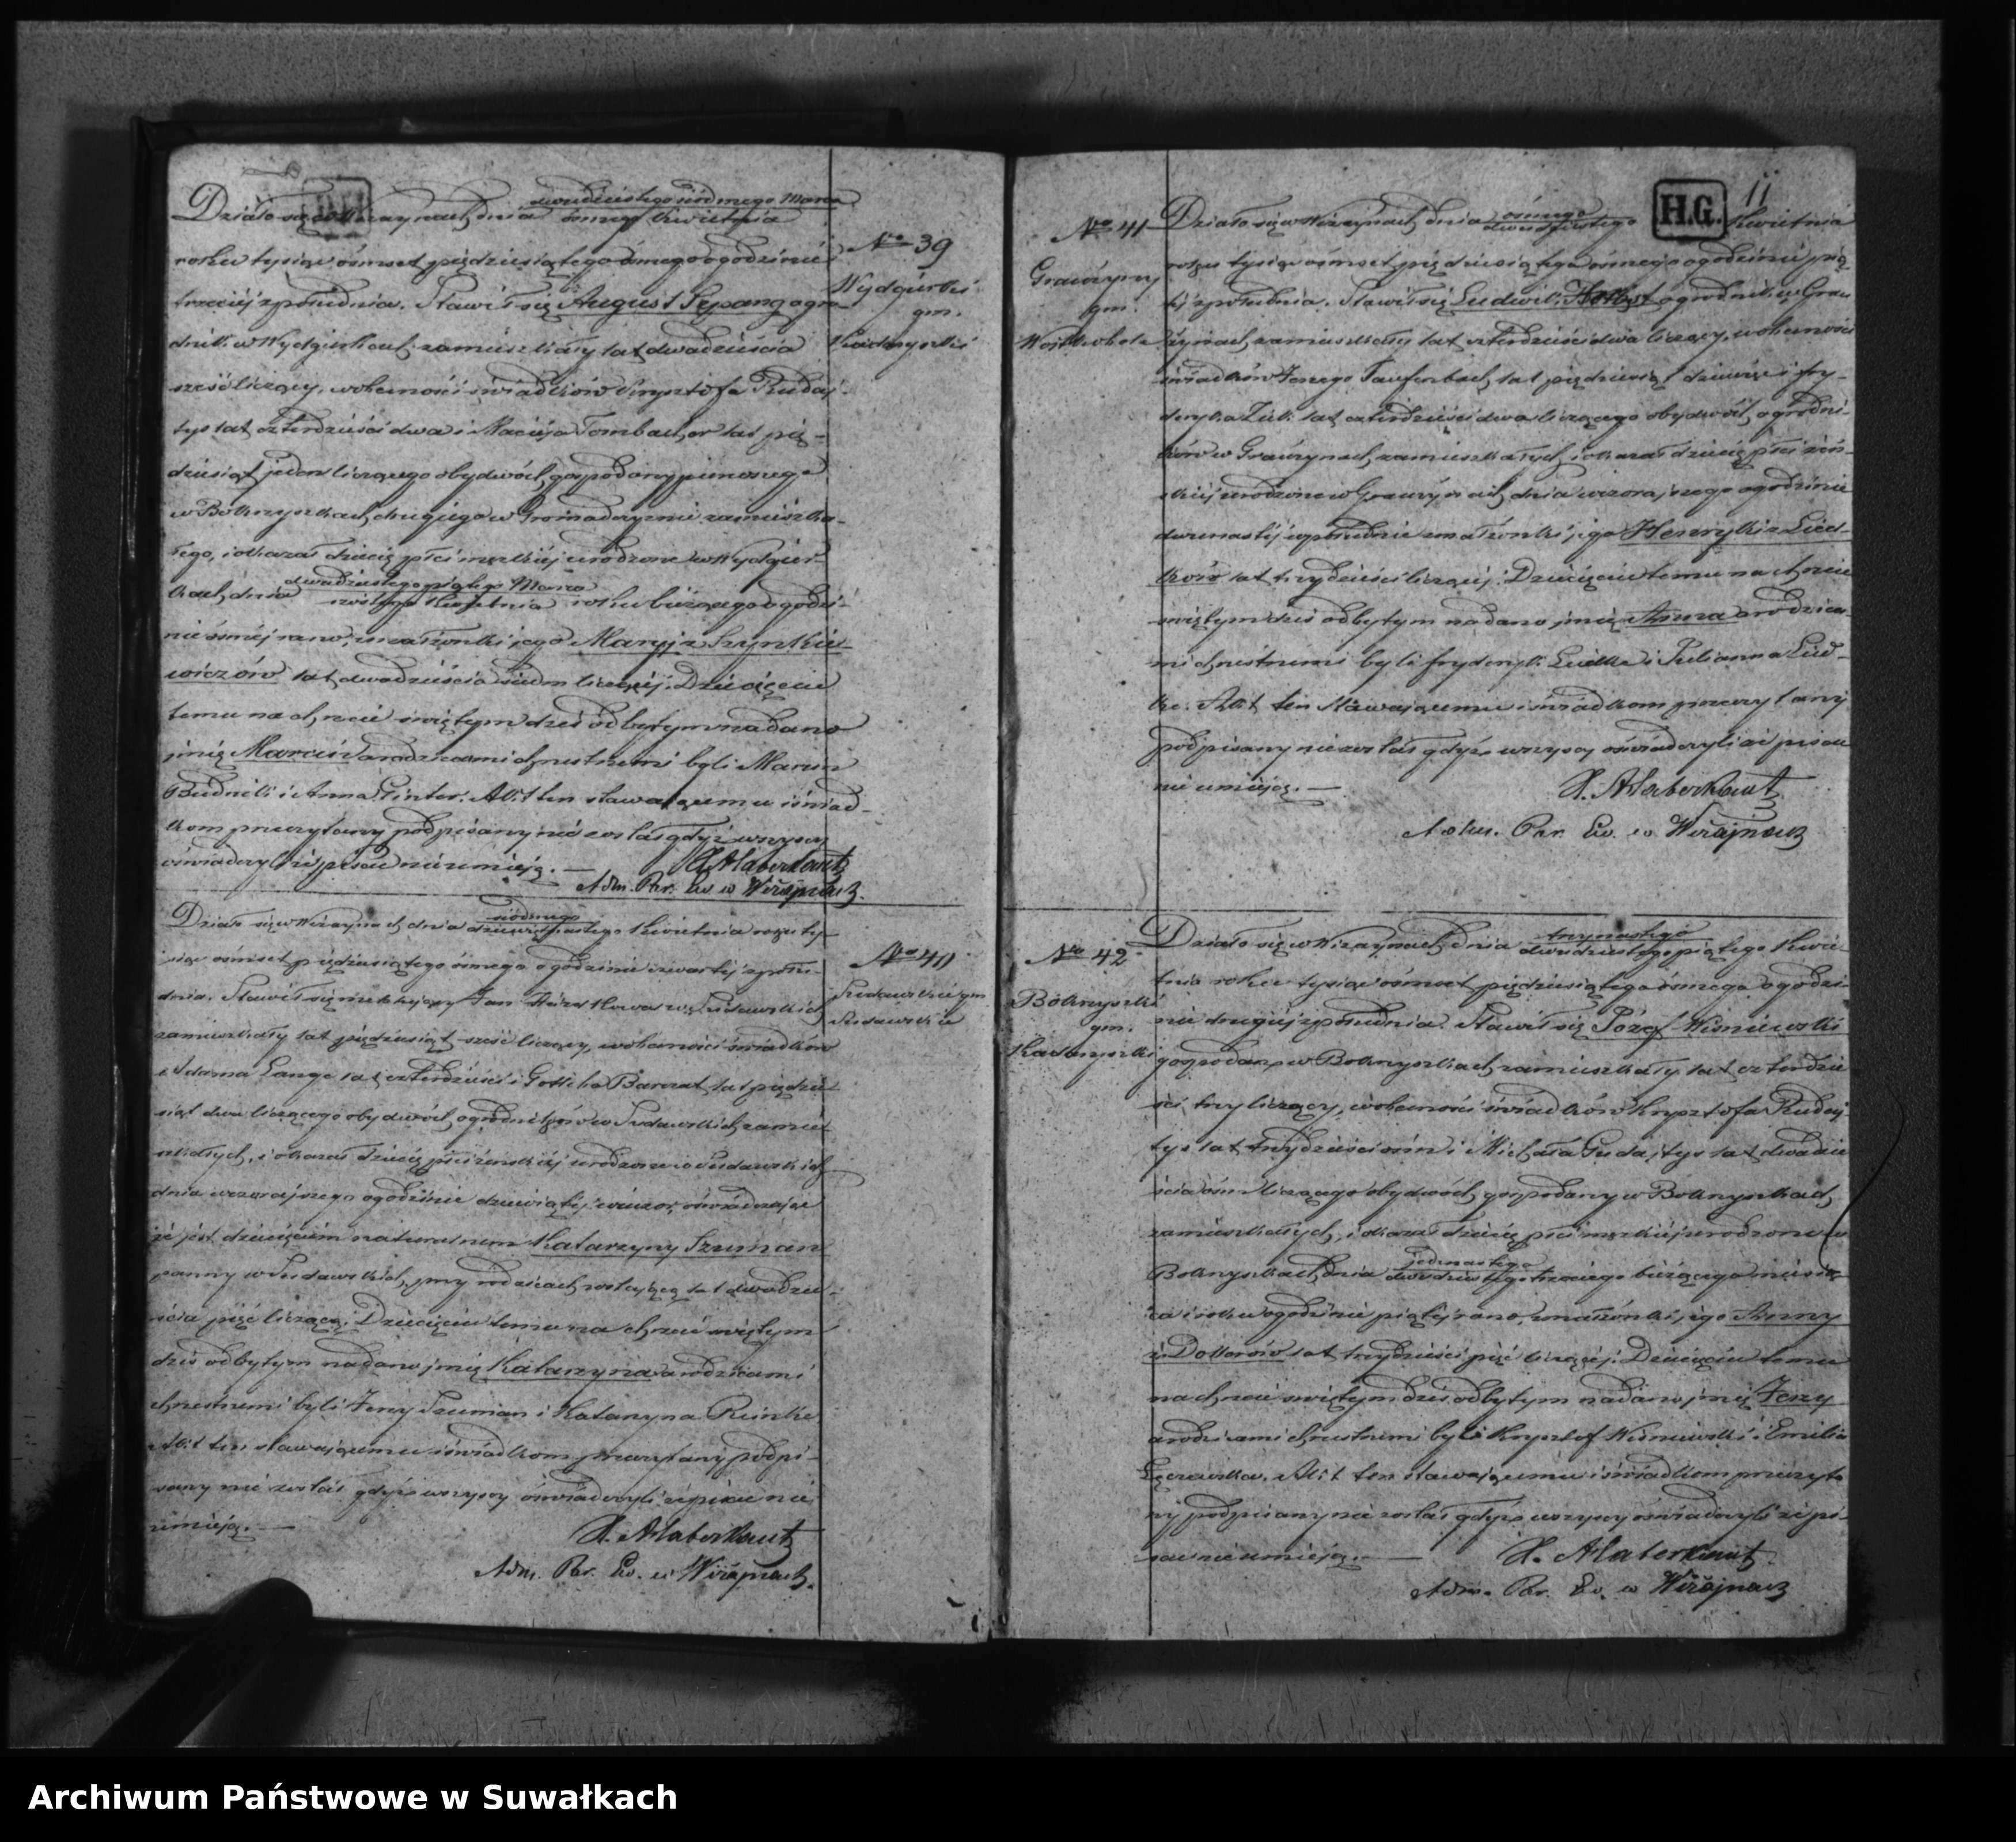 dwudziestego siódmego Marca
Działo się w Wiżaynach dnia ósmego Kwietnia
roku tysiąc ośmset pięćdziesiątego ósmego o godzinie
trzeciej z południa. Stawił się August Szpang ogro
dnik w Wydgirkach zamieszkały lat dwadzieścia
sześć liczący, w obecności świadków Krysztofa Rudaj-
tys lat czterdzieści dwa i Macieja Tombacher lat pięć-
dziesiąt jeden liczącego obydwóch gospodarzy pierwszego
w Bolcnyszkach drugiego w Gromadczyznie zamieszka-
łego, i okazał dziecię płci męzkiej urodzone w Wydgier-
dwudziestego piątego Marca
kach dnia szóstego Kwietnia roku bieżącego o godzi-
nie ósmej rano, z małżonki jego Maryi z Szynkie-
wiczów lat dwadzieścia siedm liczącej. Dziecięciu
temu na chrzcie świętym dziś odbytym nadano
imię Marcin a rodzicami chrzestnemi byli Marcin
Budnik i Anna Ginter. Akt ten stawającemu i świad-
kom przeczytany podpisany nie został gdyż wszyscy
oświadczyli iż pisać nie umieją. —
X. A Haberkant
Adm. Par. Ew w Wiżajnach.
No 39
Wydgirki
gm.
Kadaryszki
siódmego
Działo się w Wiżaynach dnia dziewiętnastego Kwietnia roku ty-
siąc ośmset pięćdziesiątego ósmego o godzinie czwartej z połu-
dnia. Stawił się niemający Jan w Sudawskich
zamieszkały lat pięćdziesiąt sześć liczący, w obecności świadków
Adama Lange lat czterdzieści i Gottliba Barczat lat pięćdzie-
siąt dwa liczącego obydwóch ogrodników w Sudawskich zamie-
szkałych, i okazał dziecię płci żeńskiej urodzone w Sudawskich
dnia wczorajszego o godzinie dziewiątej wieczor, oświadczając
że jest dziecięciem naturalnem Katarzyny Szuman
panny w Sudawskich przy rodzicach zostającej lat dwadzie-
ścia pięć liczącej. Dziecięciu temu na chrzcie świętym
dziś odbytym nadano imię Katarzyna a rodzicami
chrzestnemi byli Jerzy Szuman i Katarzyna Reinke
Akt ten stawającemu i świadkom przeczytany podpi-
sany nie został gdyż wszyscy oświadczyli iż pisać nie
umieją. —
X. A Haberkant
Adm. Par. Ew. w Wiżajnach.
No 40
Sudawskie gm
Sudawskie
H.G.
11
No 41
Graużyny
gm.
Wysztoboła
ósmego
Działo się w Wiżaynach dnia dwudziestego Kwietnia
roku tysiąc ośmset pięćdziesiątego ósmego o godzinie pią-
tej z południa. Stawił się Ludwik ogrodnik w Grau
żynach zamieszkały lat czterdzieści dwa liczący, w obecności
świadków Jerzego Taufenbach lat pięćdziesiąt dziewięć i Fry-
deryka Zuk lat czterdzieści dwa liczącego obydwóch ogrodni-
ków w Graużynach zamieszkałych, i okazał dziecię płci żeń-
skiej urodzone w Graużynach dnia wczorajszego o godzinie
dwunastej w południe z małżonki jego Henryki z Lied-
ków lat trzydzieści liczącej. Dziecięciu temu na chrzcie
świętym dziś odbytym nadano imię Anna a rodzica-
mi chrzestnemi byli Fryderyk Liedke i Julianna Lied-
ke. Akt ten stawającemu i świadkom przeczytany
podpisany nie został gdyż wszyscy oświadczyli iż pisać
nie umieją. —
X. A Haberkant
Adm. Par. Ew. w Wiżajnach
No 42
Bolcnyszki
gm.
Kadaryszki
trzynastego
Działo się w Wiżaynach dnia dwudziestego piątego Kwie-
tnia roku tysiąc ośmset pięćdziesiątego ósmego o godzi-
nie drugiej z południa. Stawił się Józef Wiśniewski
gospodarz w Bolcnyszkach zamieszkały lat czterdzie
ści trzy liczący, w obecności świadków Krysztofa Rudaj-
tys lat trzydzieści ośm i Michała Gudajtys lat dwadzie
ścia ośm liczącego obydwóch gospodarzy w Bolcnyszkach
zamieszkałych, i okazał dziecię płci męzkiej urodzone w
jedenastego
Bolcnyszkach dnia dwudziestego trzeciego bieżącego miesią-
ca i roku o godzinie piątej rano, z małżonki jego Anny
z Dollarów lat trzydzieści pięć liczącej. Dziecięciu temu
na chrzcie świętym dziś odbytym nadano imię Jerzy
a rodzicami chrzestnemi byli Krysztof Wiśniewski i Emilia
Akt ten stawającemu i świadkom przeczyta
ny podpisany nie został gdyż wszyscy oświadczyli iż pi-
sać nie umieją. —
X. A Haberkant
Adm. Par. Ew. w Wiżajnach
Archiwum Państwowe w Suwałkach